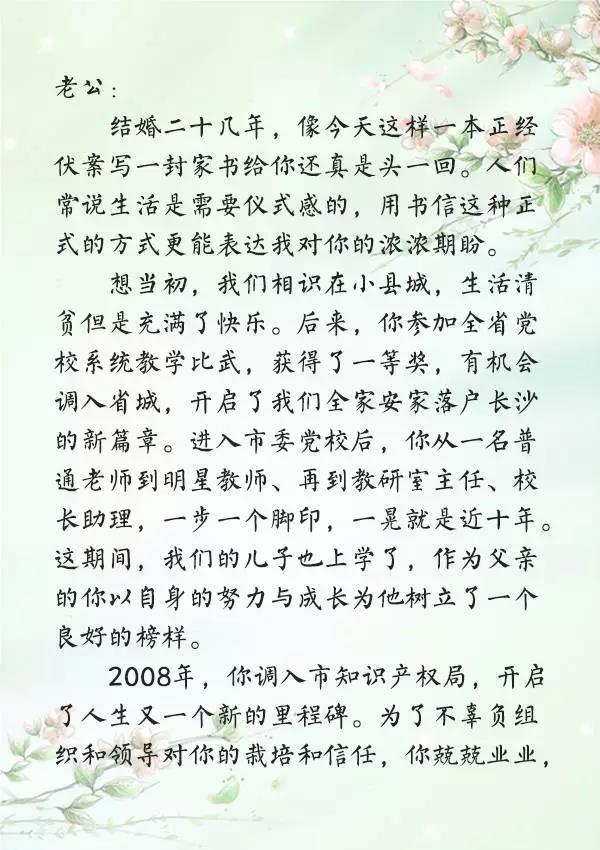 老公：
结婚二十几年，像今天这样一本正经
伏案写一封家书给你还真是头一回。人们
常说生活是需要仪式感的，用书信这种正
式的方式更能表达我对你的浓浓期盼。
想当初，我们相识在小县城，生活清
贫但是充满了快乐。后来，你参加全省党
校系统教学比武，获得了一等奖，有机会
调入省城，开启了我们全家安家落户长沙
的新篇章。进入市委党校后，你从一名普
通老师到明星教师、再到教研室主任、校
长助理，一步一个脚印，一晃就是近十年。
这期间，我们的儿子也上学了，作为父亲
的你以自身的努力与成长为他树立了一个
良好的榜样。
2008年，你调入市知识产权局，开启
了人生又一个新的里程碑。为了不辜负组
织和领导对你的栽培和信任，你兢兢业业，